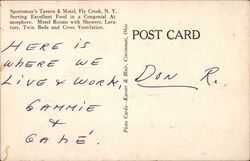 Sportsman's Tavern & Motel, Fly Creek, N. Y.
Serving Excellent Food in a Congenial At
mosphere. Motel Rooms with Showers, Lava-
tory, Twin Beds and Cross Ventilation.
POST CARD
HERE IS
WHERE WE
LIVE & WORK,
CAMMIE
&
GAMÉ.
DON R.